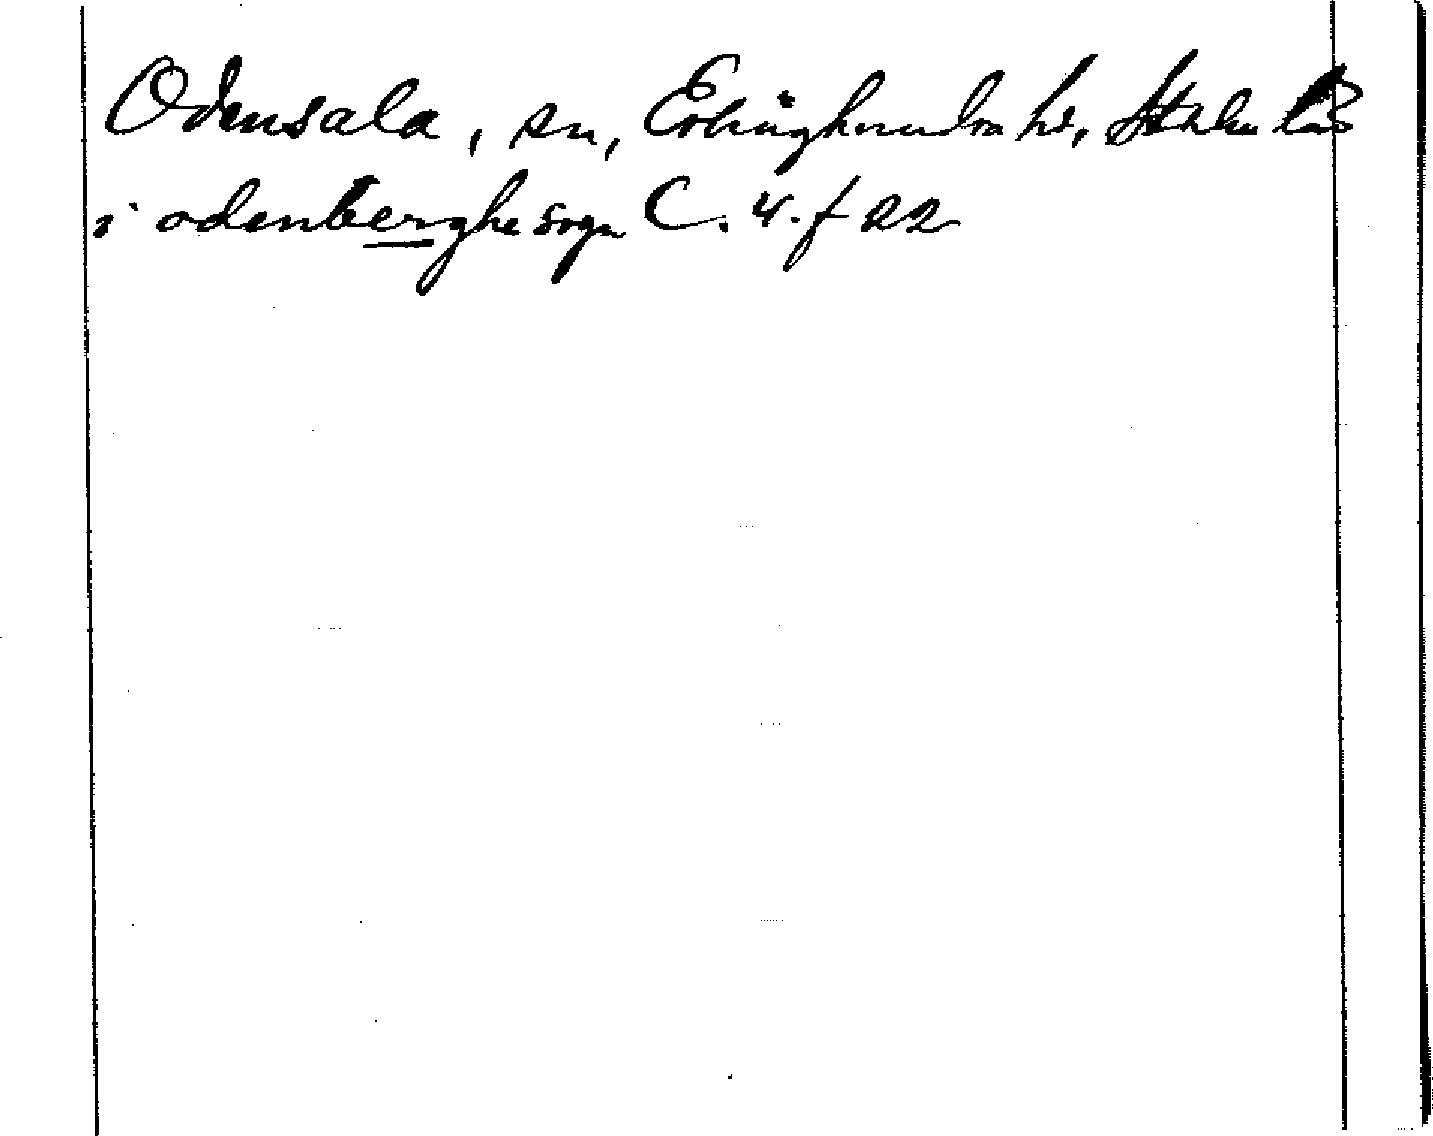 Odensala, sn, Erlinghundra hd, Sthlm län
i odenberghe sogn C. 4. f 22